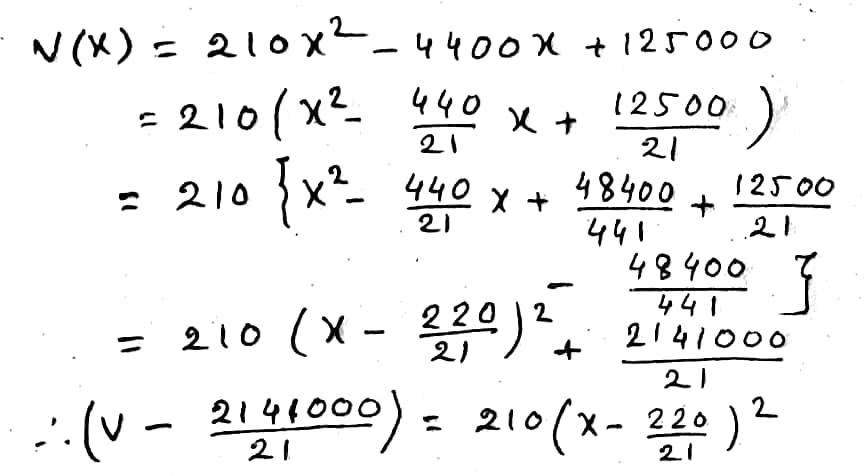 V(x) = 210x² - 4400x + 125000
= 210(x² - 440/21 x + 12500/21)
= 210 {x² - 440/21 x + 48400/441 + 12500/21 - 48400/441}
= 210 (x - 220/21)² + 2141000/21
∴ (V - 2141000/21) = 210(x - 220/21)²